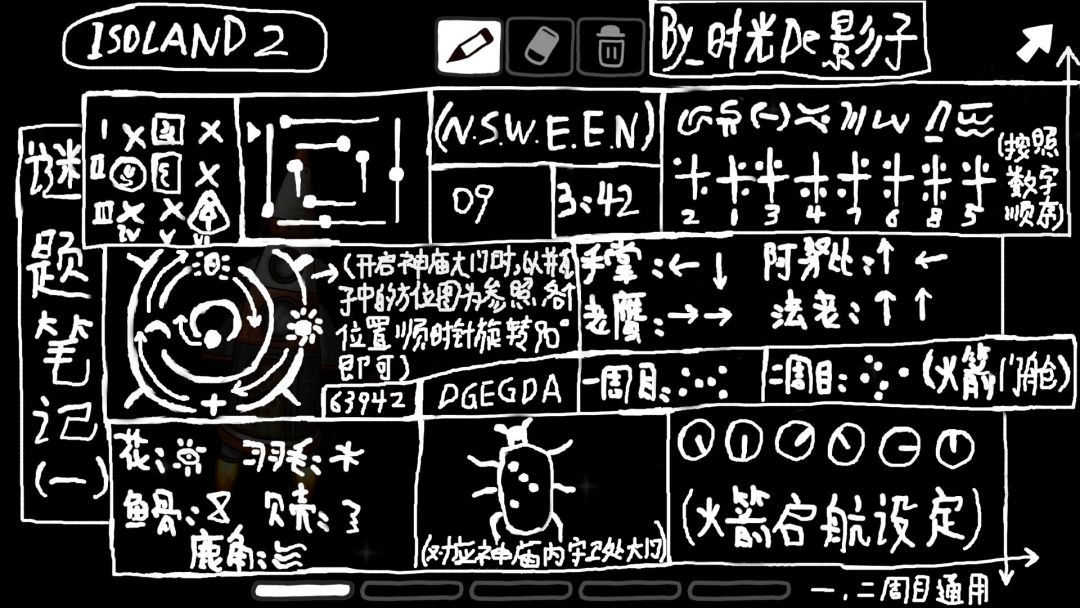 ISOLAND 2
By_时光De影子
谜题笔记(一)
I
II
III
IV
V
VI
(N.S.W.E.E.N)
09
3:42
2 1 3 4 7 6 8 5
(按照
数字
顺序)
(开启神庙大门时,以井盖
子中的方位图为参照各个
位置顺时针旋转90°
即可)
63942
DGEGDA
手掌:←↓
阿努比:↑←
老鹰:→→
法老:↑↑
一周目:
二周目:
(火箭门舱)
花:
羽毛:
鱼骨:
贝壳:
鹿角:
(对应神庙内守卫处大门)
(火箭启航设定)
一、二周目通用